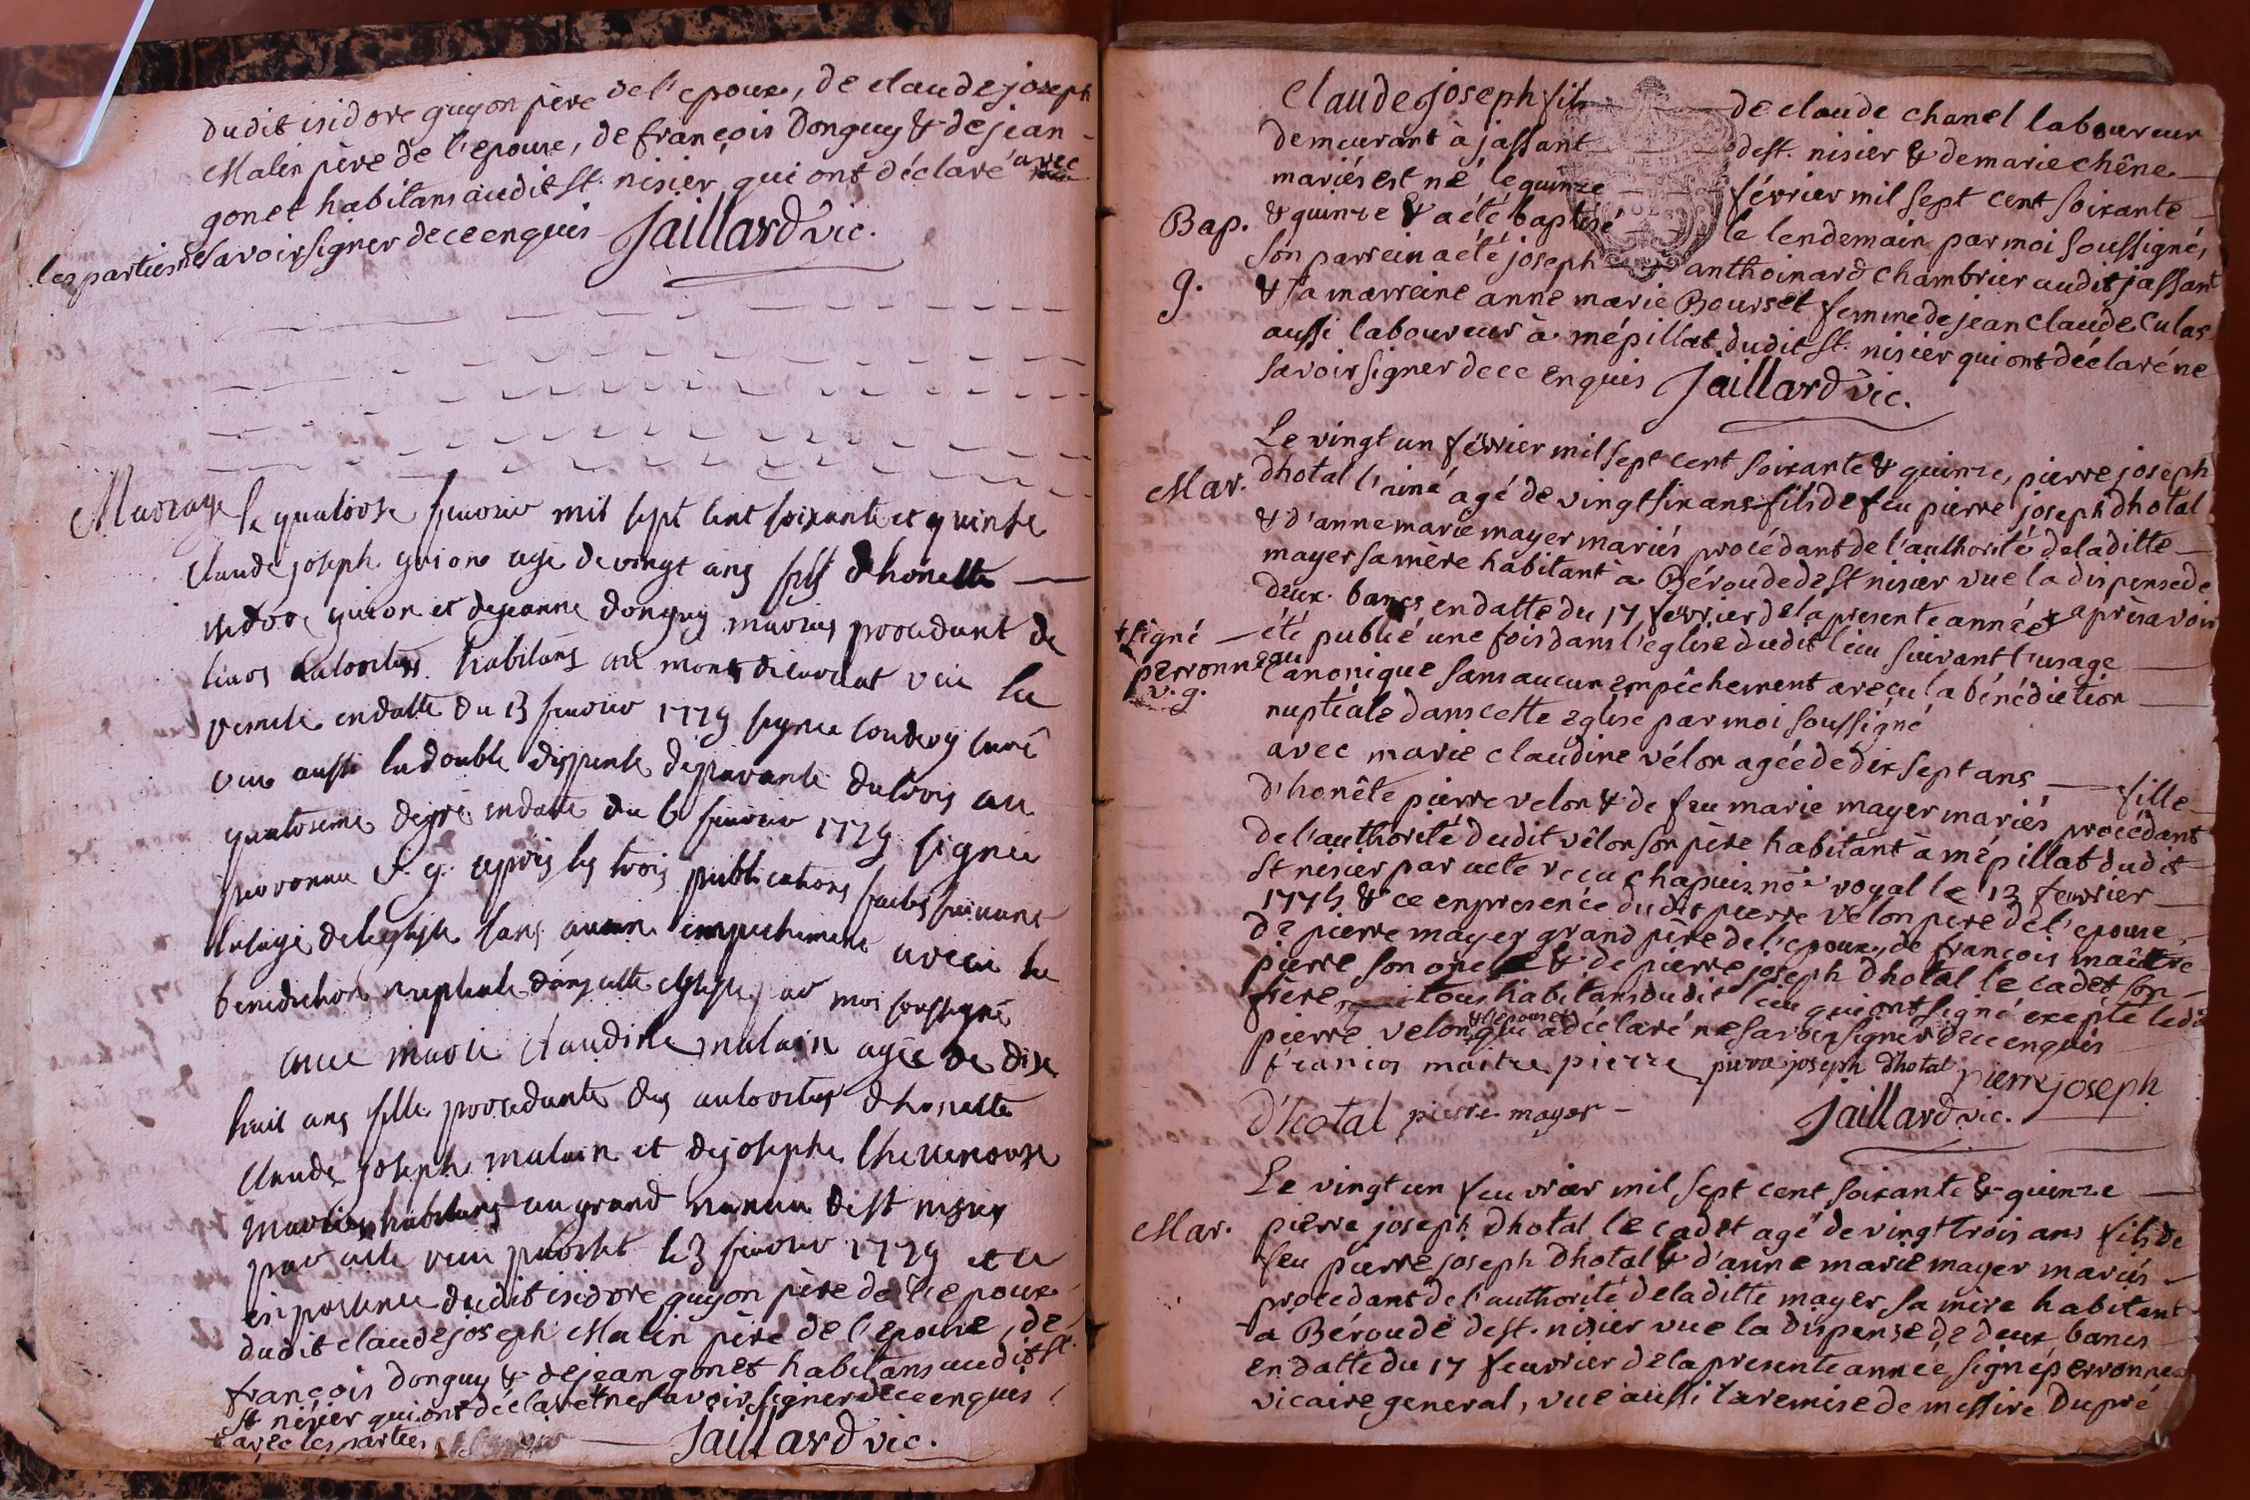 dudit isidore guyon père de l'epoux, de claude joseph
Malin père de l'epouse, de françois Donguy & de jean
gonet habitans audit st. nisier qui ont déclaré avec
les parties ne savoir signer de ce enquis Jaillard vic.
Mariage
le quatorse fevrier mil sept cent soixante et quinse
claude joseph guion agé de vingt ans fils d'honette
isidore guion et de jeanne donguy mariés procedant de
leurs autorités habitans au mont vue la
remise en datte du 13 fevrier 1775 signée curé
vue aussi la double dispense de parenté du trois au
quatrieme degré en datte du 6 fevrier 1775 signée
perronnea v. g. après les trois publications faites suivant
l'usage de l'eglise sans aucun empechement a recu la
benediction nuptiale dans cette eglise par moi soussigné
avec marie claudine malain agée de dix
huit ans fille procedante des autorités d'honette
claude joseph malain et de josephe thevenouse
mariés habitans au grand st nisier
par acte recu le 3 fevrier 1775 et ce
en presence dudit isidore guyon père de l'epoux
dudit claude joseph Malin père de l'epouse, de
françois Donguy & de jean gonet habitans audit st.
st nisier qui ont déclaré + ne savoir signer de ce enquis
+ avec les parties Jaillard vic.
claude joseph fils de claude chanel laboureur
demeurant à jassant de st. nisier & de marie chêne
mariés est né le quinze février mil sept cent soixante
Bap.
& quinze & a été baptisé le lendemain par moi soussigné,
son parrein a été joseph anthoinard chambrier audit jassant
g.
& sa marreine anne marie Bourset femme de jean claude Culas
aussi laboureur à mépillat dudit st. nisier qui ont déclaré ne
savoir signer de ce enquis Jaillard vic.
Le vingt un février mil sept cent soixante & quinze, pierre joseph
Mar.
dhotal l'ainé agé de vingt six ans fils de feu pierre joseph dhotal
& d'anne marie mayer mariés procédant de l'authorité de la ditte
mayer sa mère habitant à Béroude de st nisier vue la dispense de
deux bancs en datte du 17 fevrier de la presente année + après avoir
+ signé
perronnea
v. g.
été publié une fois dans l'eglise dudit lieu suivant l'usage
canonique sans aucun empêchement a reçu la bénédiction
nuptiale dans cette eglise par moi soussigné
avec marie claudine vélon agée de dix sept ans fille
d'honête pierre velon & de feu marie mayer mariés procédant
de l'authorité dudit vêlon son père habitant à mépillat dudit
st nisier par acte recu chapuis nore royal le 13 fevrier
1775 & ce en presence dudit pierre vélon père de l'epouse,
de pierre mayer grand père de l'epoux, de françois maître
pierre son & de pierre joseph dhotal le cadet son
frère tous habitans dudit lieu qui ont signé excepté ledit
pierre velon & l'epouse qui a déclaré ne savoir signer de ce enquis
françois maitre pierre pierre joseph dhotal pierre joseph
d'hotal pierre mayer Jaillard vic.
Le vingt un feuvrier mil sept cent soixante & quinze
Mar.
pierre joseph Dhotal le cadet agé de vingt trois ans fils de
feu pierre joseph Dhotal & d'anne marie mayer mariés
procédant de l'authorité de la ditte mayer sa mère habitant
a Béroude de st. nisier vue la dispense de deux bancs
en datte du 17 feuvrier de la presente année signé perronnea
vicaire general, vue aussi la remise de messire Dupré